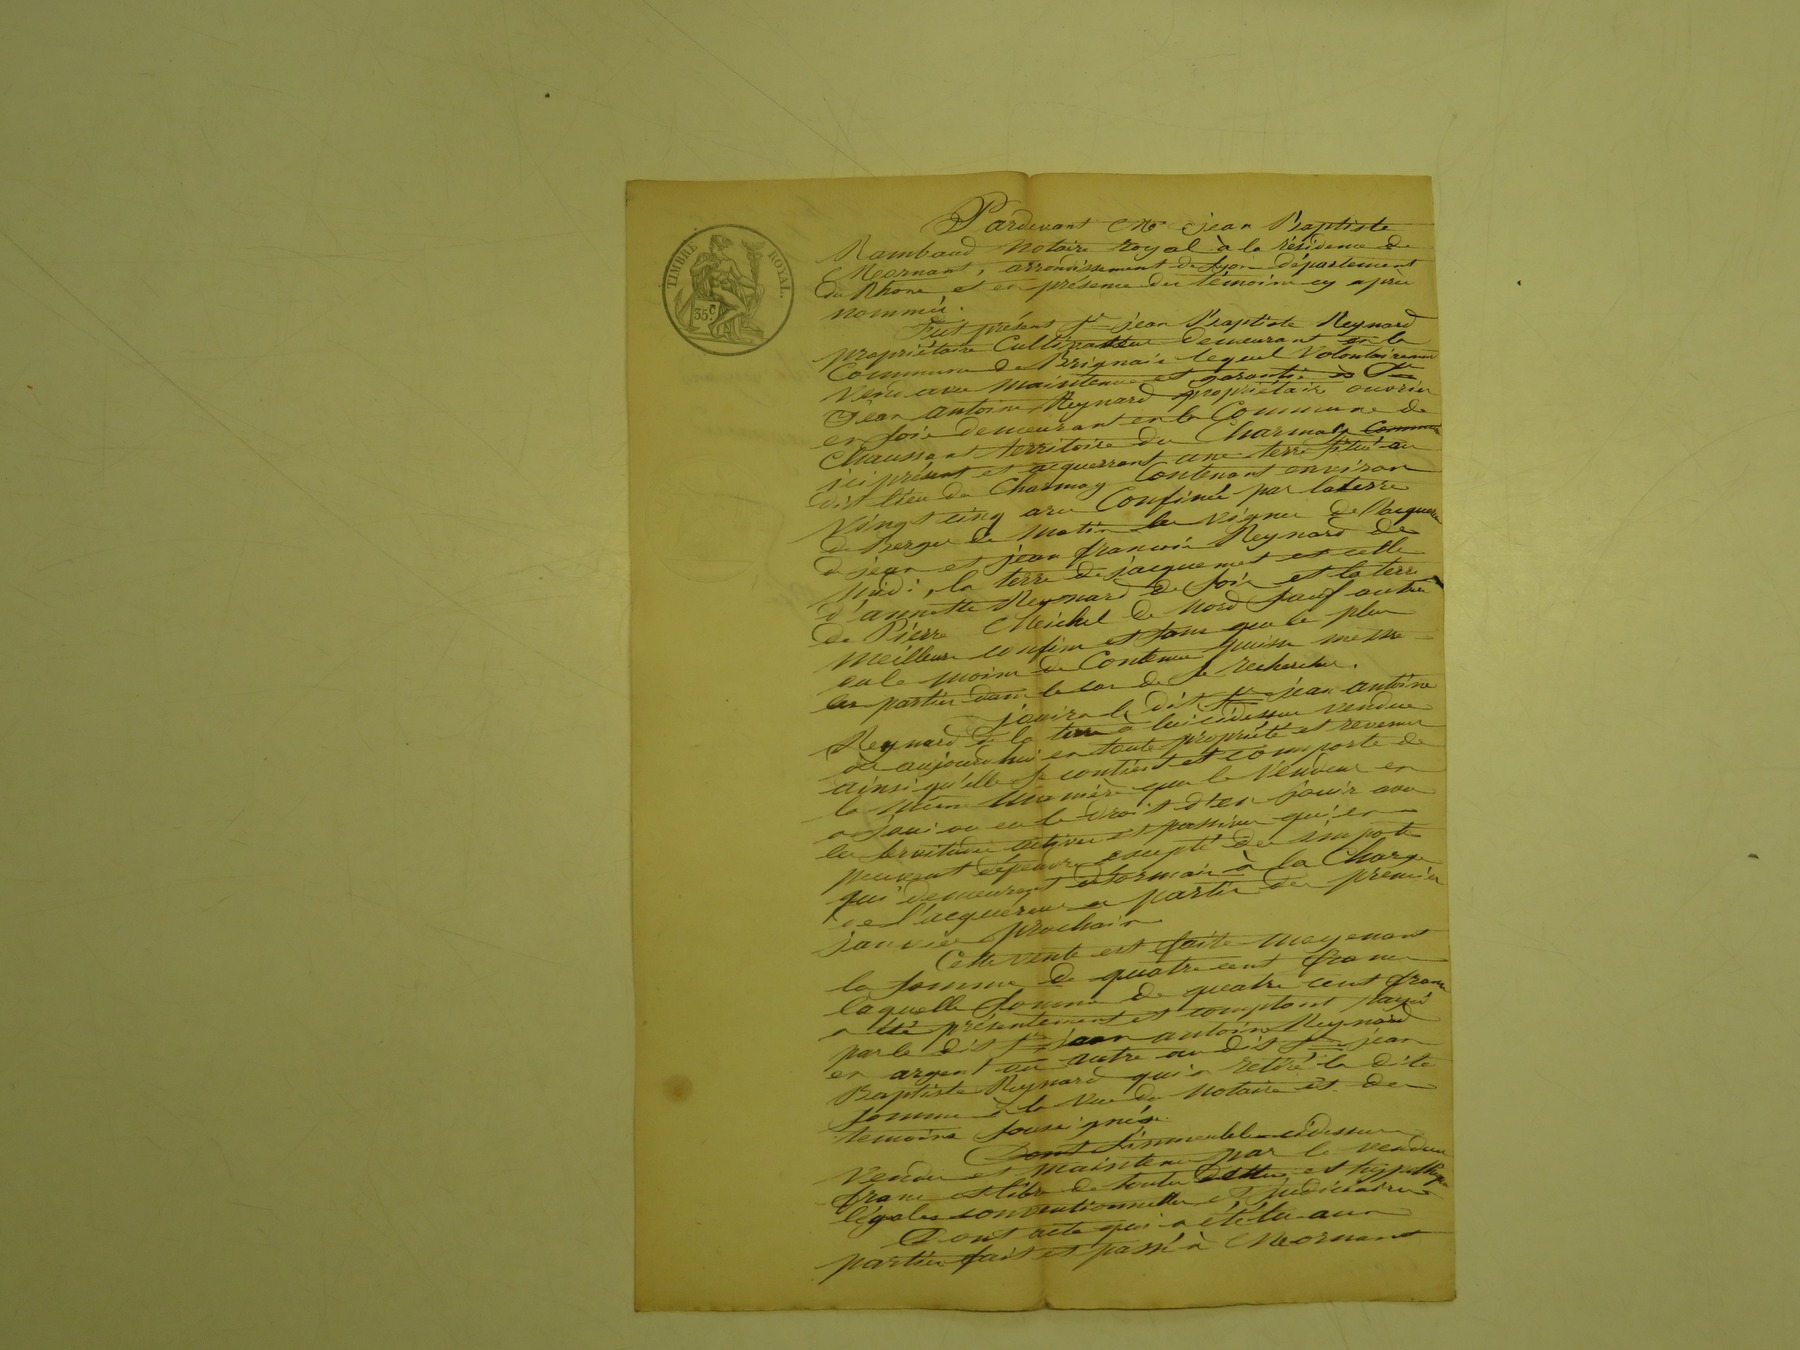 TIMBRE ROYAL.
35 c
Pardevant Me jean Baptiste
Rambaud Notaire royal à la résidence de
Mornant, arrondissement de Lyon département
du Rhone et en présence des témoins cy après
nommés.
Fut présent Sr jean Baptiste Reynard
propriétaire Cultivateur demeurant en la
Commune de lequel Volontairement
Vend avec maintenue et garantie à Sr
Jean antoine Reynard propriétaire ouvrier
en soie demeurant en la Commune de
Chaussant territoire du Charmay
ici présent et acquerrant une terre situé au
dit lieu du Charmay Contenant environ
Vingt cinq ares Confinée par la terre
de Berger de matin les Vignes de
à jean et jean françois Reynard de
Midi, la terre de jacquemet et celle
d'annette Reynard de soir et la terre
de Pierre Michel de Nord sauf autres
meilleurs confins et sans que le plus
ou le moins de Contenue puisse mettre
les parties dans le cas de se rechercher.
jouira le dit Sr jean antoine
Reynard de la terre à lui cidessus vendue
dès aujourd'hui en toute propriété et revenus
ainsi qu'elle se contient et comporte de
la même manière que le Vendeur en
a joui ou eu le droit d'en jouir avec
les servitudes actives et passives qui en
peuvent dépendre excepté des impots
qui demeurent désormais à la Charge
de l'acquéreur à partir du premier
janvier prochain
Cette vente est faite moyenant
la somme de quatre cent francs
laquelle somme de quatre cent francs
a été présentement et comptant payé
par le dit Sr jean antoine Reynard
en argent au dit Sr jean
Baptiste Reynard qui a retiré la dite
somme à la Vue du Notaire et des
temoins soussignés.
Dont l'immeuble cidessus
Vendu est maintenu par le vendeur
franc et libre de toutes dettes et hypothèques
légales conventionnelles et judiciaires
Dont acte qui a été lu aux
parties fait et passé à Mornant